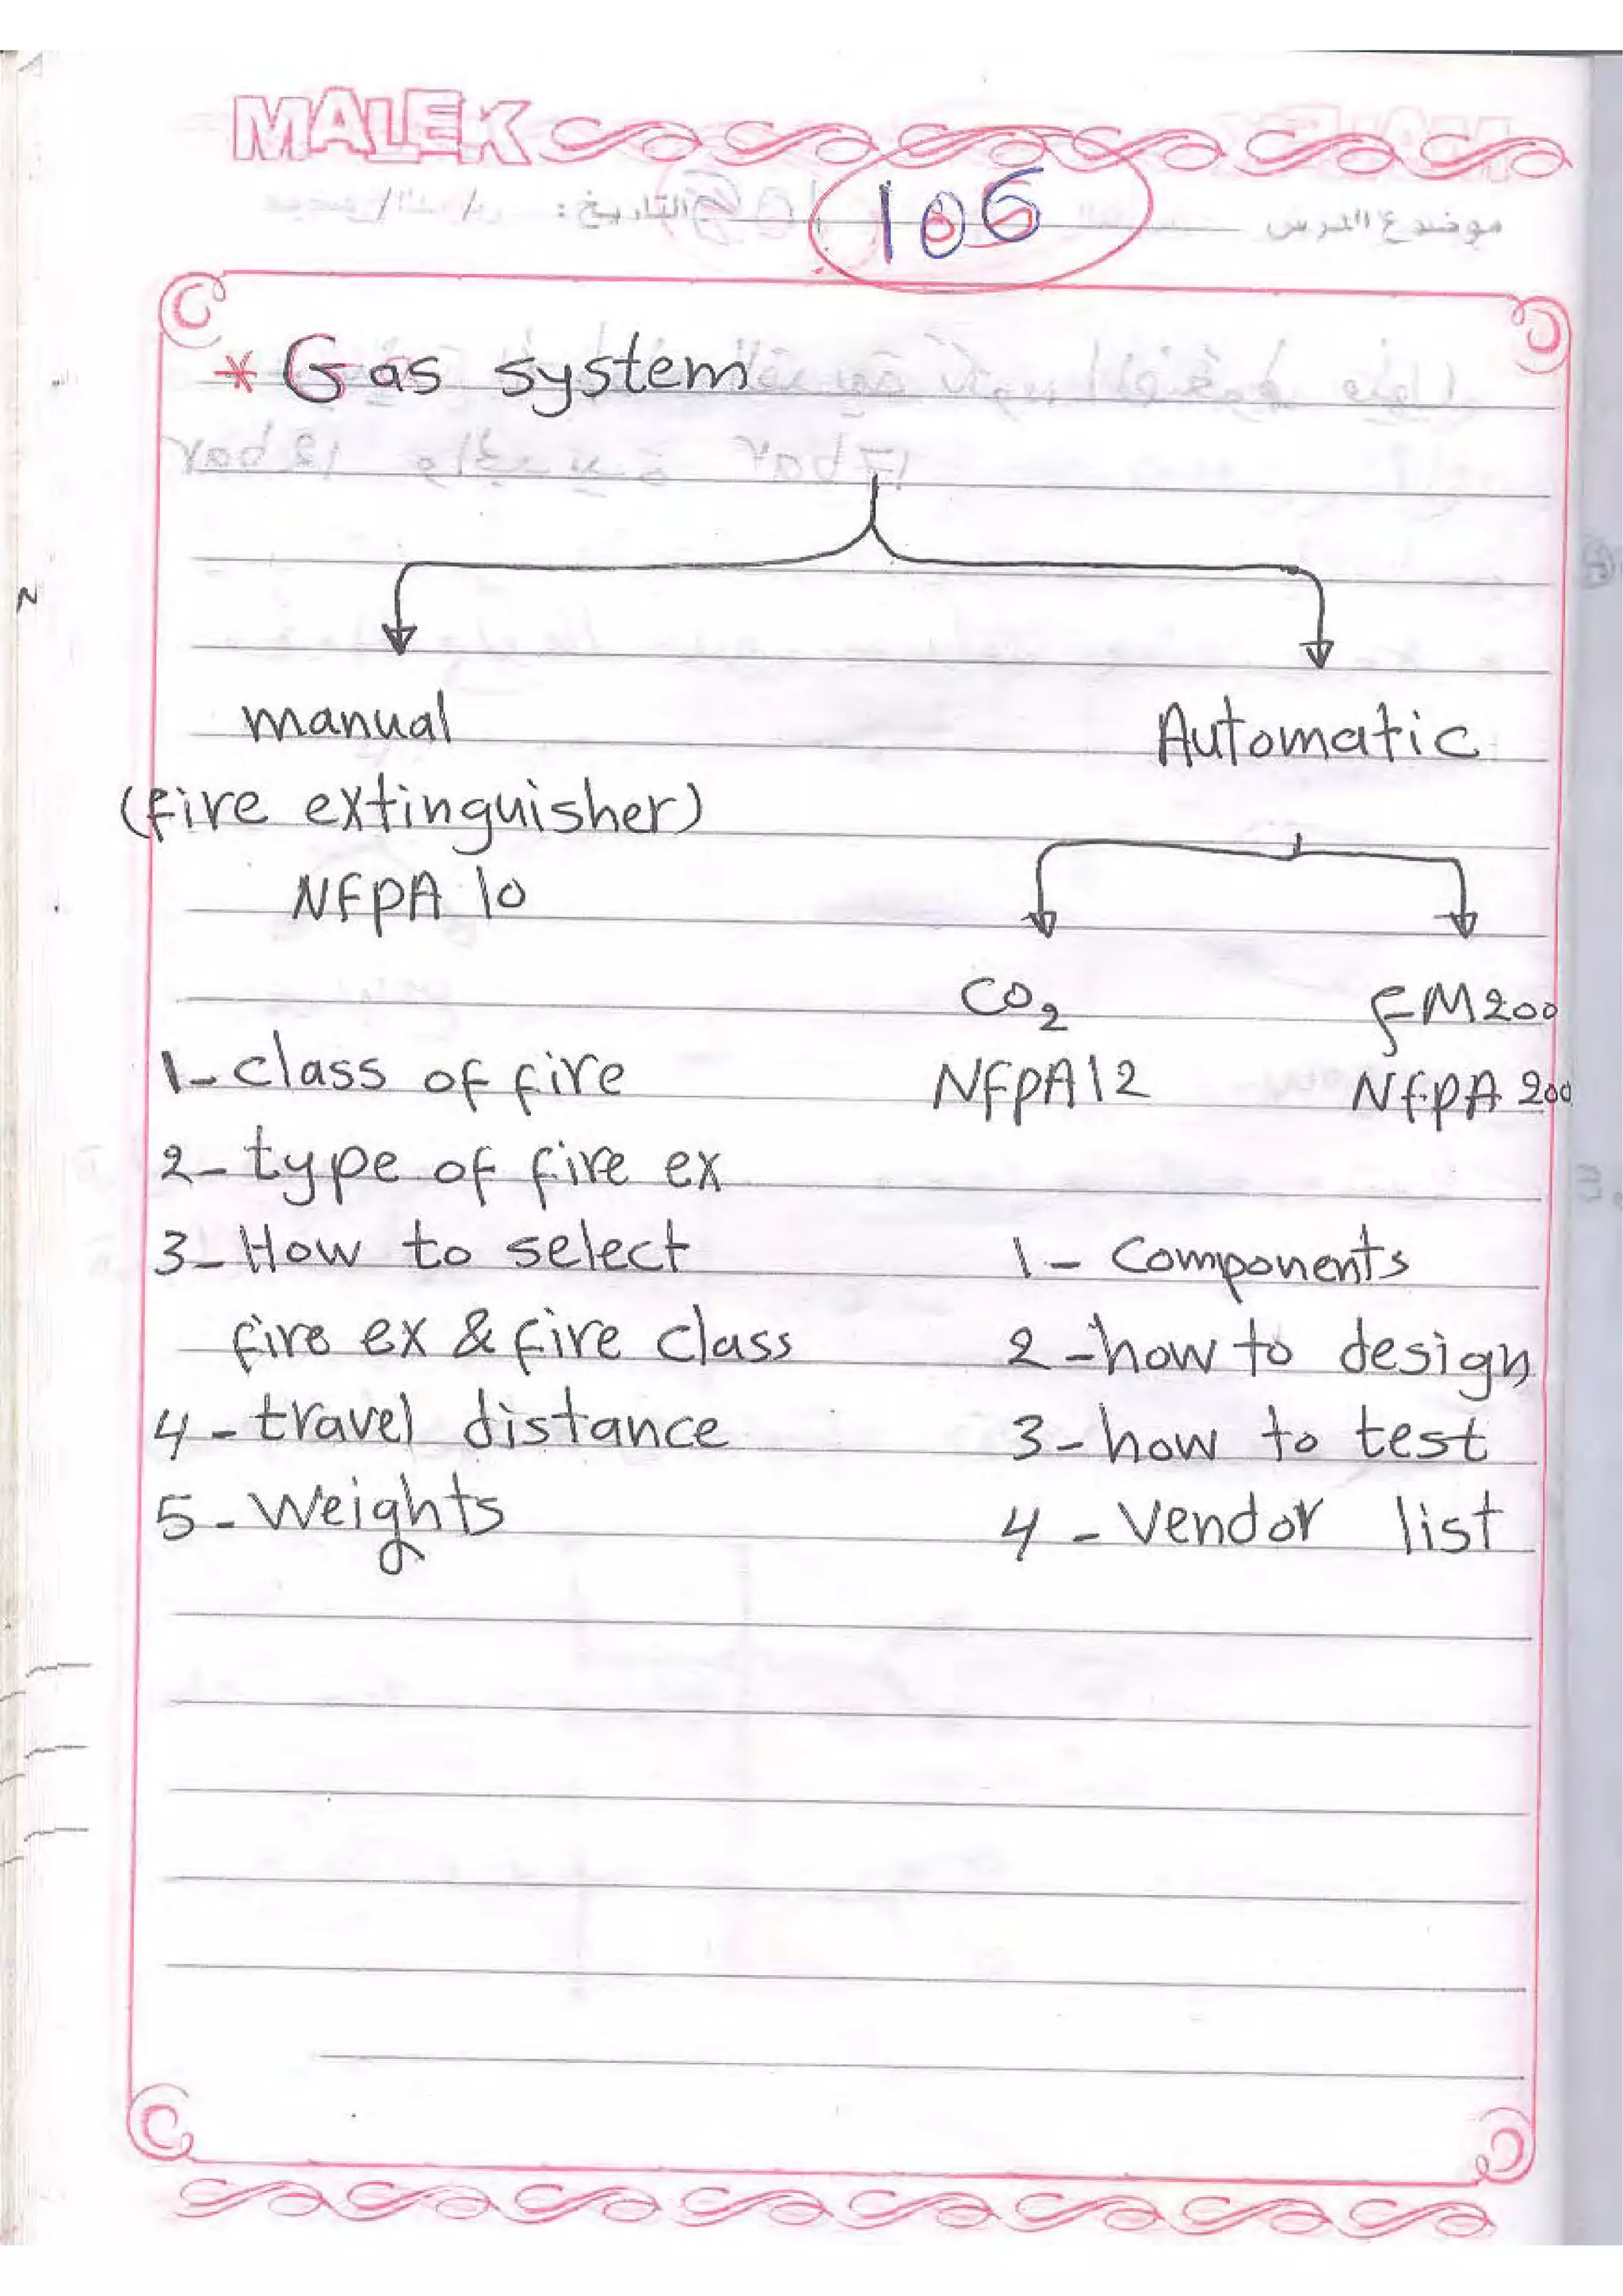 MALEK
موضوع الدرس
التاريخ:
106
* Gas system
manual
Automatic
(fire extinguisher)
NFPA 10
CO₂
FM200
NFPA12
NFPA 200
1- class of fire
2- type of fire ex
3- How to select
fire ex & fire class
4 - travel distance
5 - Weights
1 - Components
2 - how to design
3 - how to test
4 - Vendor list